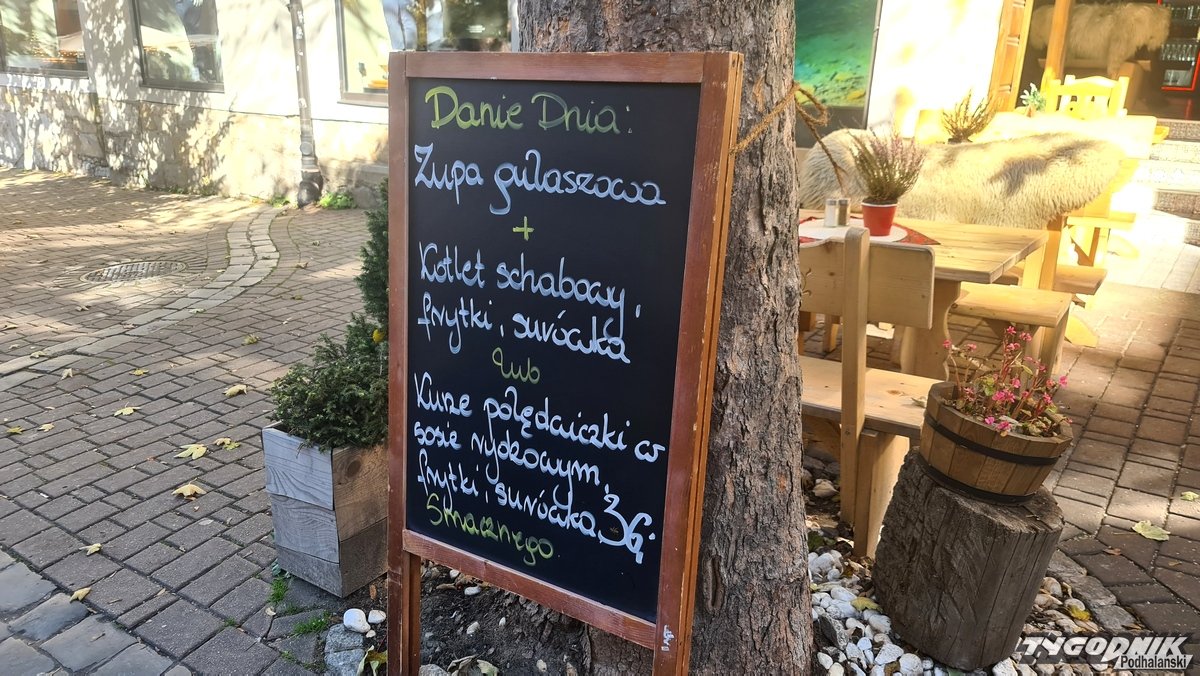 Danie Dnia:
Zupa gulaszowa
+
Kotlet schabowy,
frytki, surówka
lub
Kurze polędwiczki w
sosie rydzowym,
frytki, surówka, 36,-
Smacznego
TYGODNIK
Podhalański